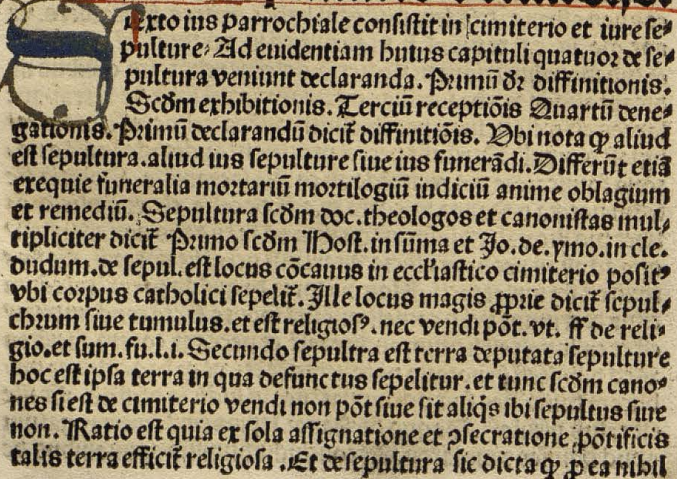 Sexto ius parrochiale consistit in cimiterio et iure se⸗
pulture: Ad euidentiam huius capituli quatuor de se⸗
pultura veniunt declaranda. Primū dr̄ diffinitionis.
Scd̄m exhibitionis. Terciū receptiōis Quartū dene⸗
gationis. Primū declarandū dicit̄ diffinitiōis. Vbi nota ꝙ aliud
est sepultura. aliud ius sepulture siue ius funerādi. Differūt etiā
exequie funeralia mortariū mortilogiū indiciū anime oblagium
et remediū. Sepultura scd̄m doc. theologos et canonistas mul⸗
tipliciter dicit̄ Primo scd̄m Host. in sūma et Jo. de. ymo. in cle.
dudum. de sepul. est locus cōcauus in eccl̄iastico cimiterio positꝰ
vbi corpus catholici sepelit̄. Ille locus magis ꝓprie dicit̄ sepul⸗
chrum siue tumulus. et est religiosꝰ. nec vendi pōt. vt. ff de reli⸗
gio. et sum. fu. l. i. Secundo sepultra est terra deputata sepulture
hoc est ipsa terra in qua defunctus sepelitur. et tunc scd̄m cano⸗
nes si est de cimiterio vendi non pōt siue sit aliq̄s ibi sepultus siue
non. Ratio est quia ex sola assignatione et ↄsecratione pōtificis
talis terra efficit̄ religiosa. Et de sepultura sic dicta ꝙ ꝑ ea nihil